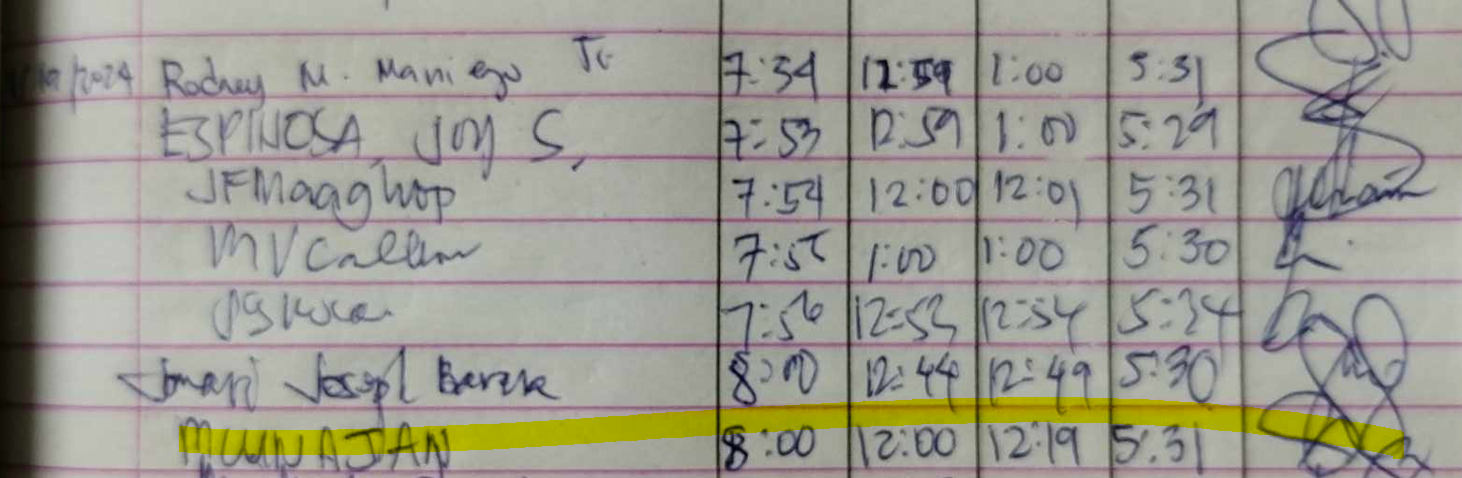 /2024 Rodney M. Maniego Jr 7:54 12:59 1:00 5:31
ESPINOSA, JOY S. 7:53 12:59 1:00 5:29
JFMagghop 7:54 12:00 12:01 5:31
MV 7:55 1:00 1:00 5:30
7:56 12:53 12:54 5:34
Joseph 8:00 12:44 12:49 5:30
8:00 12:00 12:19 5:31